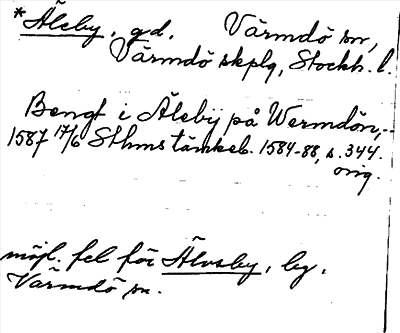 *Äleby, gd. Värmdö sn,
Värmdö skplg, Stockh. l.
Bengt i Älebÿ på Wermdön,..
1587 17/6 Sthms tänkeb. 1584-88, s. 344.
orig.
möjl. fel för Älvsby, by,
Värmdö sn.